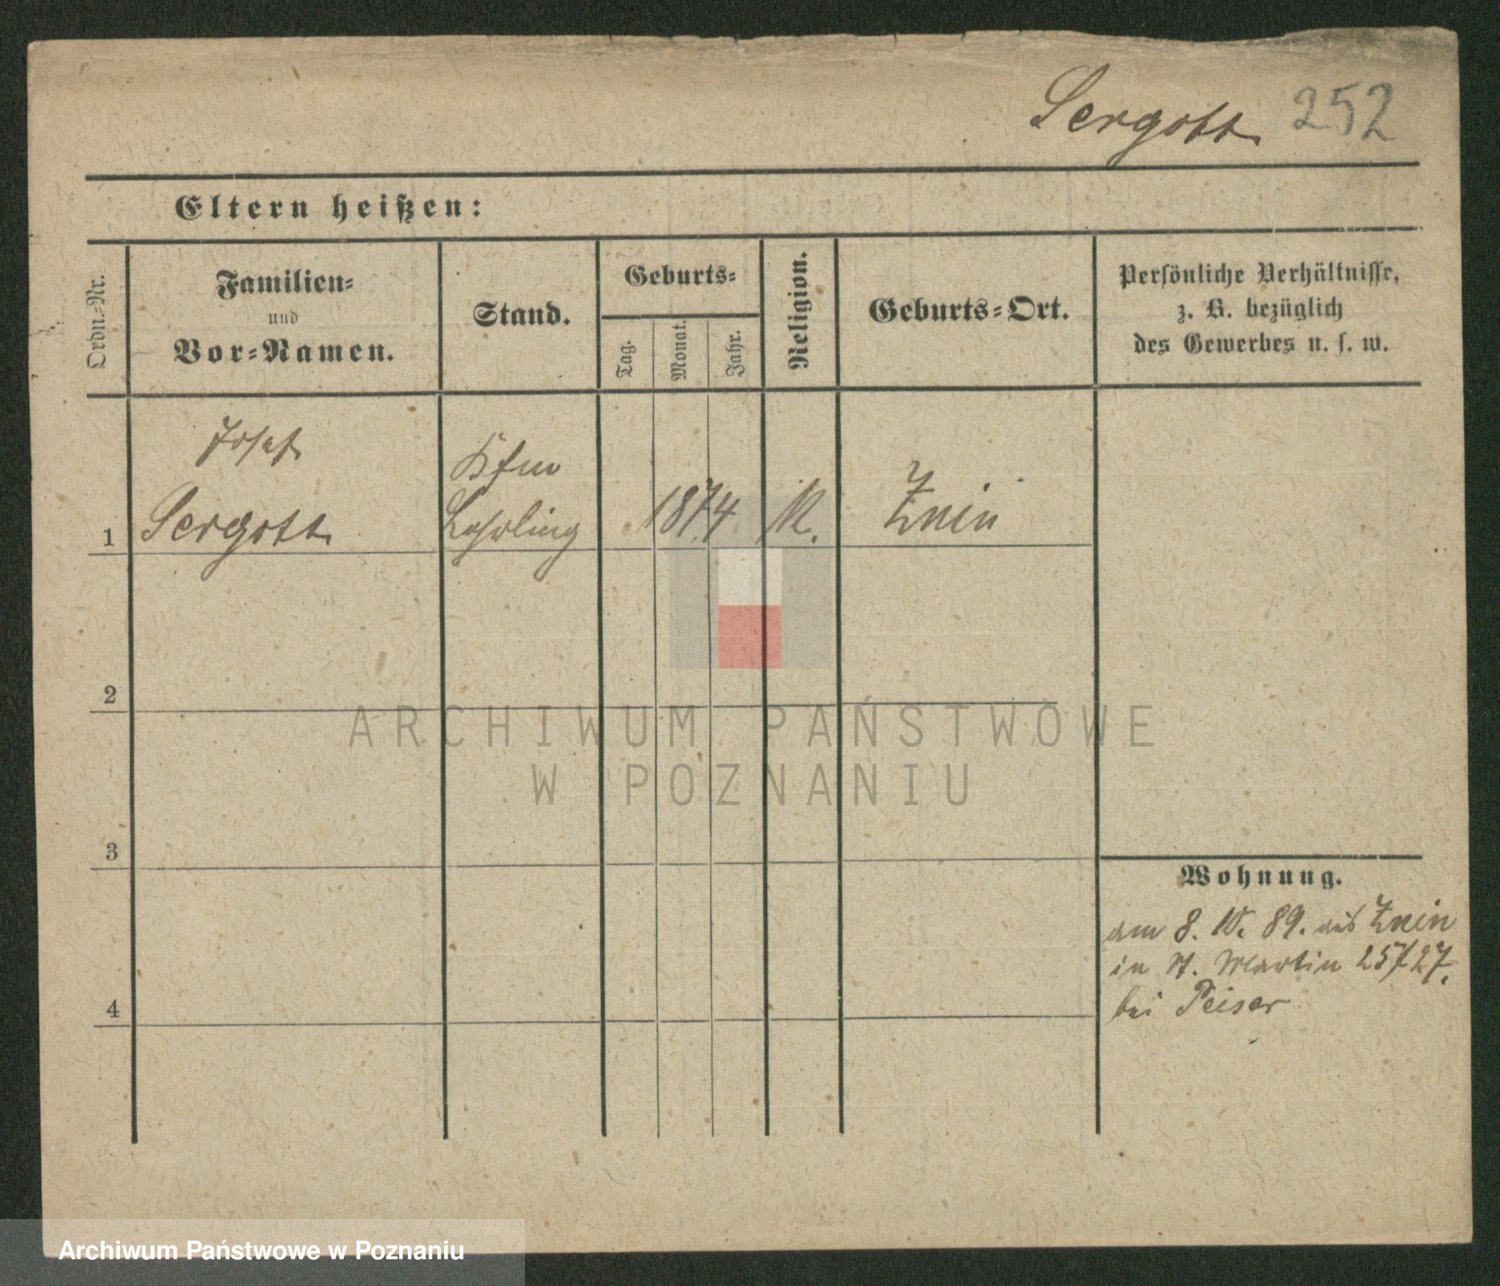 Sergott 252
Eltern heißen:
Ordn.-Nr.
Familien-
und
Vor-Namen.
Stand.
Geburts-
Tag.
Monat.
Jahr.
Religion.
Geburts-Ort.
Persönliche Verhältnisse,
z. B. bezüglich
des Gewerbes u. s. w.
Josef
Sergott
Kfm
Lehrling
1874
K.
Znin
1
2
3
4
Wohnung.
am 8. 10. 89. aus Znin
in St. Martin 25/27.
bei Peiser
ARCHIWUM PAŃSTWOWE
W POZNANIU
Archiwum Państwowe w Poznaniu